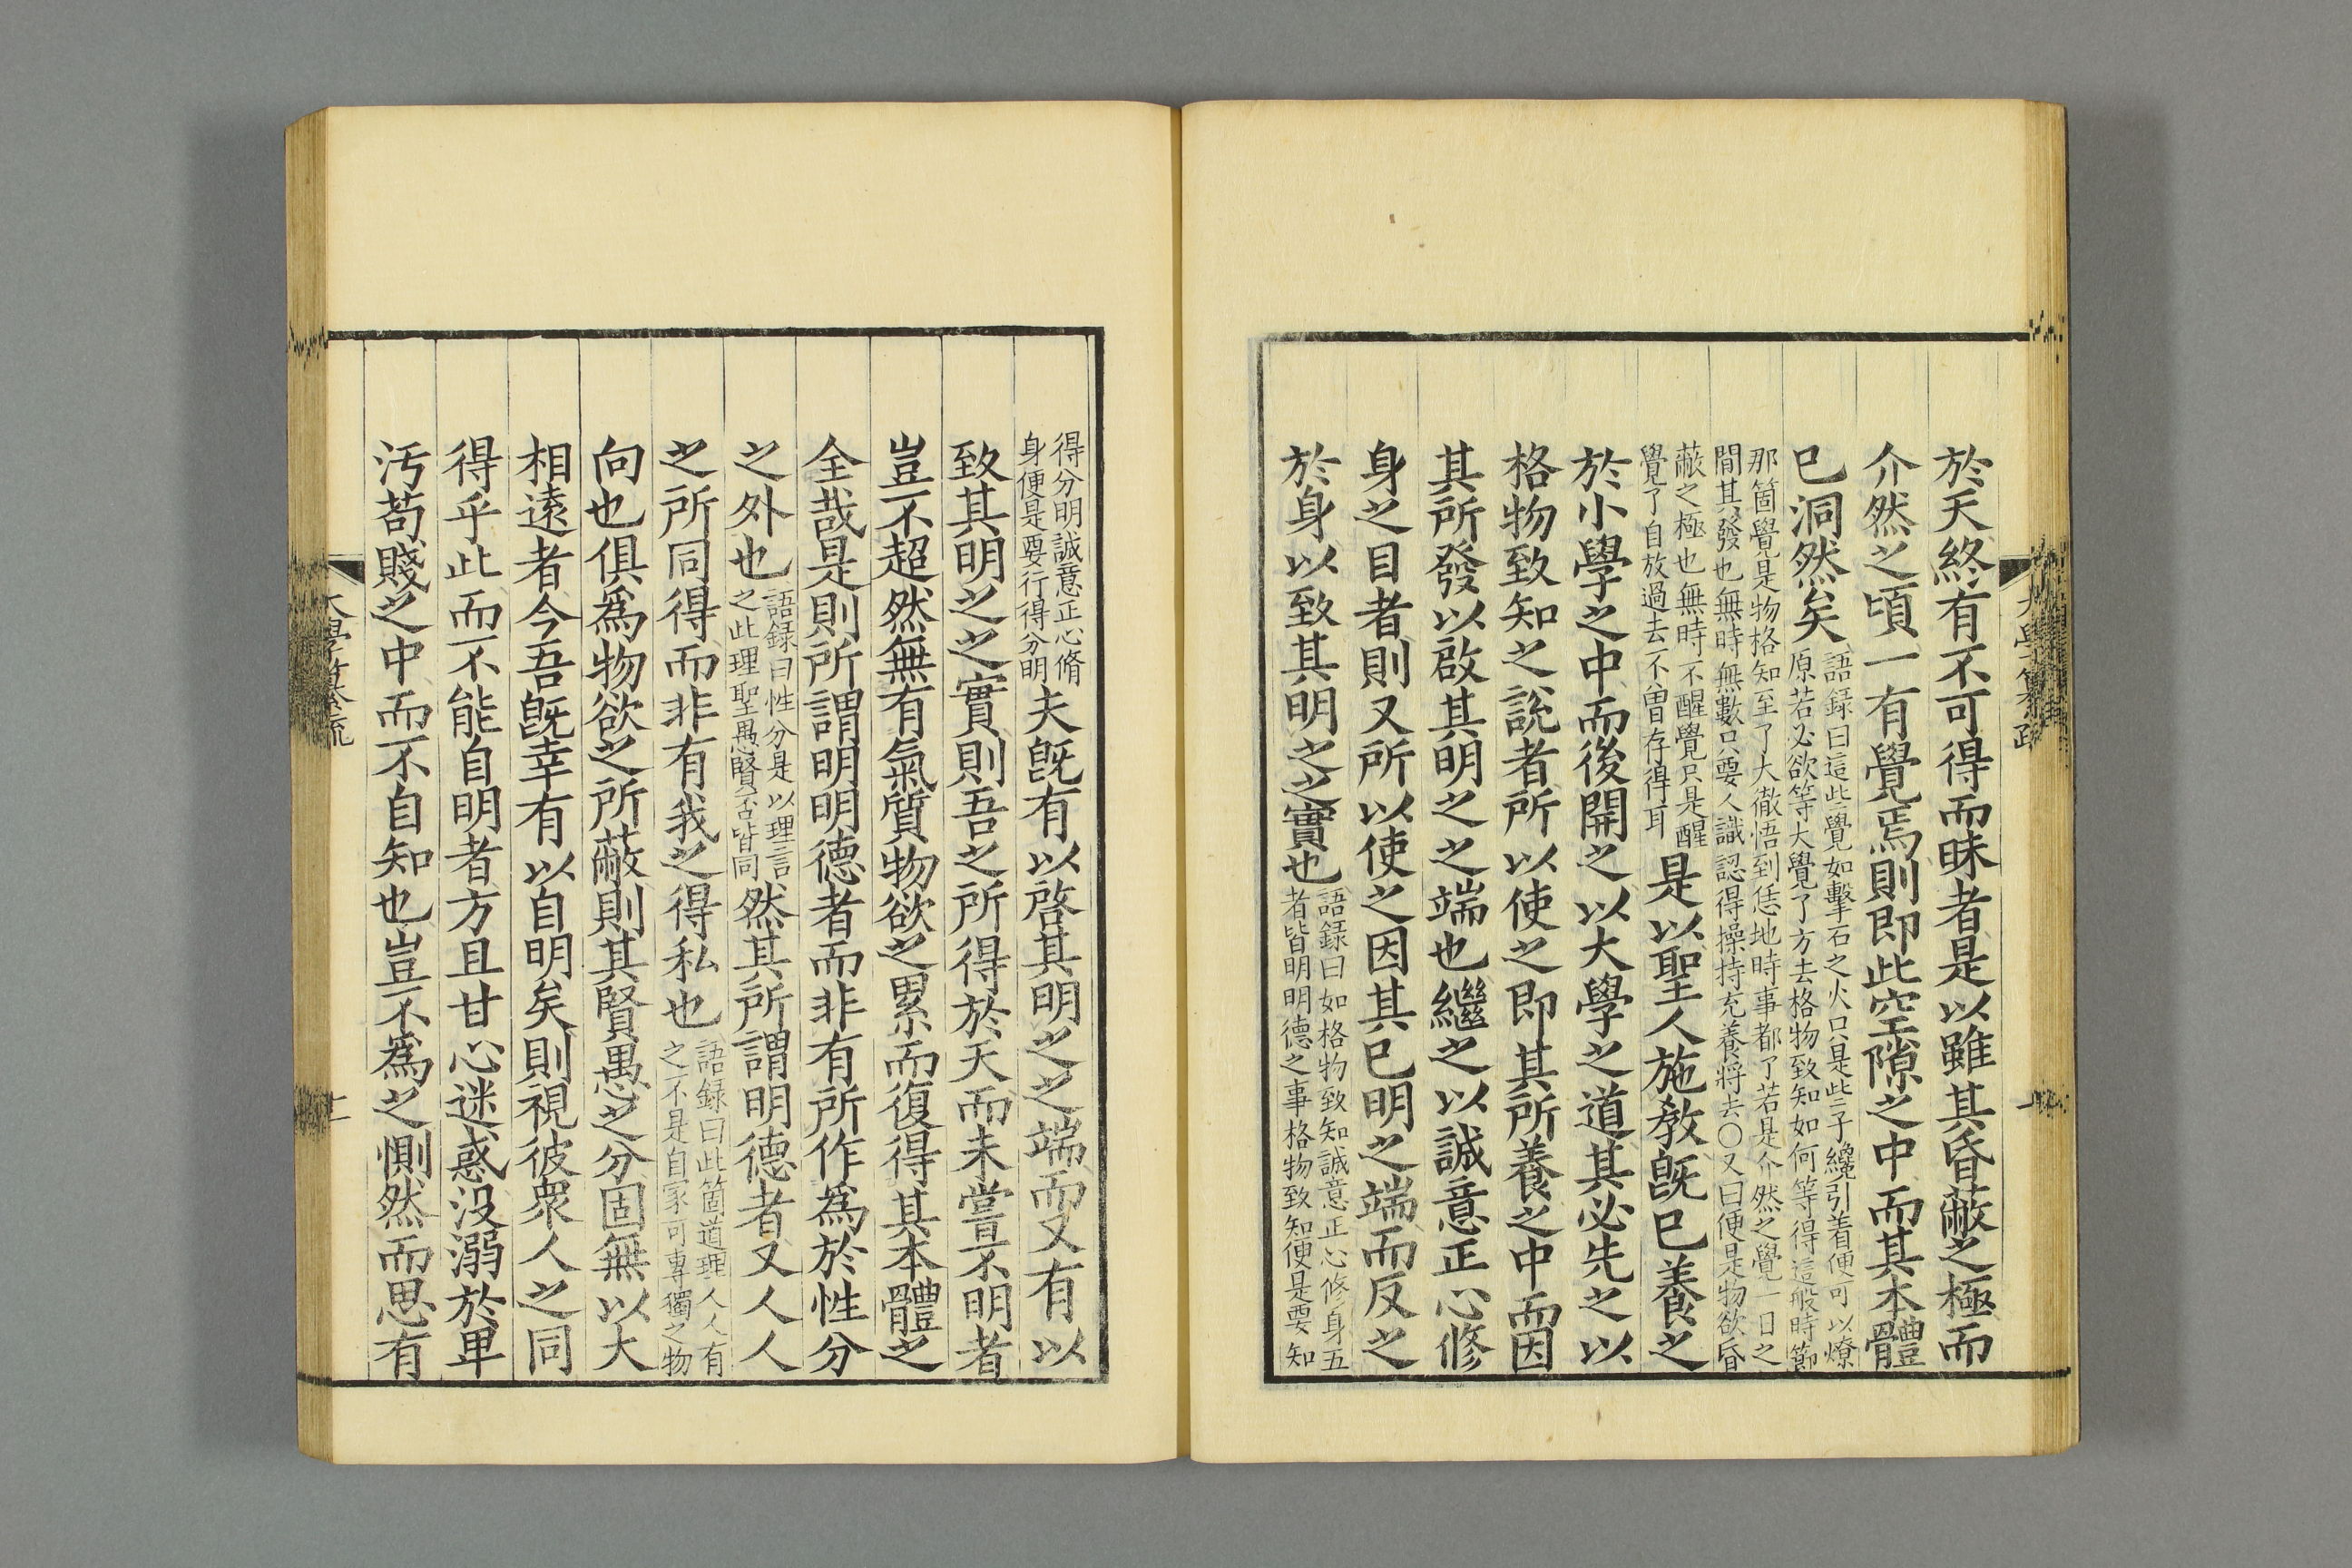 於天終有不可得而昧者是以雖其昏蔽之極而
介然之頃一有覺焉則即此空隙之中而其本體
已洞然矣
語録曰這些覺如擊石之火只是些子纔引着便可以燎
原若必欲等大覺了方去格物致知如何等得這般時節
那箇覺是物格知至了大徹悟到恁地時事都了若是介然之覺一日之
間其發也無時無數只要人識認得操持充養將去○又曰便是物欲昏
蔽之極也無時不醒覺只是醒
覺了自放過去不曽存得耳
是以聖人施教旣已養之
於小學之中而後開之以大學之道其必先之以
格物致知之說者所以使之即其所養之中而因
其所發以啟其明之之端也繼之以誠意正心修
身之目者則又所以使之因其已明之端而反之
於身以致其明之之實也
語録曰如格物致知誠意正心修身五
者皆明明德之事格物致知便是要知
得分明誠意正心脩
身便是要行得分明
夫旣有以啓其明之之端而又有以
致其明之之實則吾之所得於天而未嘗不明者
豈不超然無有氣質物欲之累而復得其本體之
全哉是則所謂明明德者而非有所作爲於性分
之外也
語録曰性分是以理言
之此理聖愚賢否皆同
然其所謂明德者又人人
之所同得而非有我之得私也
語録曰此箇道理人人有
之不是自家可專獨之物
向也俱爲物欲之所蔽則其賢愚之分固無以大
相遠者今吾旣幸有以自明矣則視彼衆人之同
得乎此而不能自明者方且甘心迷惑没溺於卑
汚苟賤之中而不自知也豈不爲之惻然而思有
大學纂疏